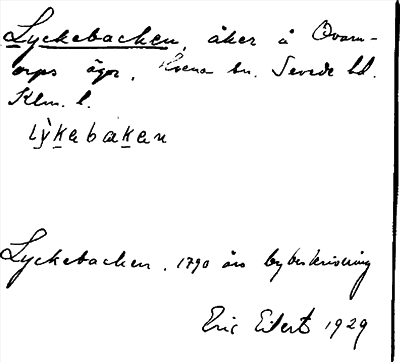 Lyckebacken, åker å Qvarn-
orps ägor, Hvena sn. Sevede hd.
Klm. l.
lỳkabakan
Lyckebacken, 1790 års bybeskrivning
Eric Eilert 1929